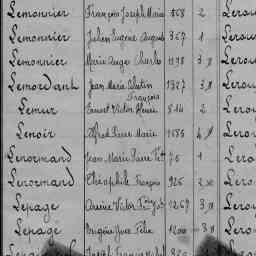 Lemonnier François Joseph Marie 568 2 Lerou
Lemonnier Julien Eugène Auguste 367 1 Lerou
Lemonnier Marie Ange Charles 1198 3 Lerou
Lemordant Jean Marie Valentin François 1327 3 Lero
Lemur Ernest Victor Henri 814 2 Lero
Lenoir Alfred Pierre Marie 1585 4 Lero
Lenormand Jean Marie Pierre 76 1 Lero
Lenormand Théophile François 926 3 Lero
Lepage Arsène Victor 1269 3 Lero
Lepage Eugène Jean Félix 1200 3 Lero